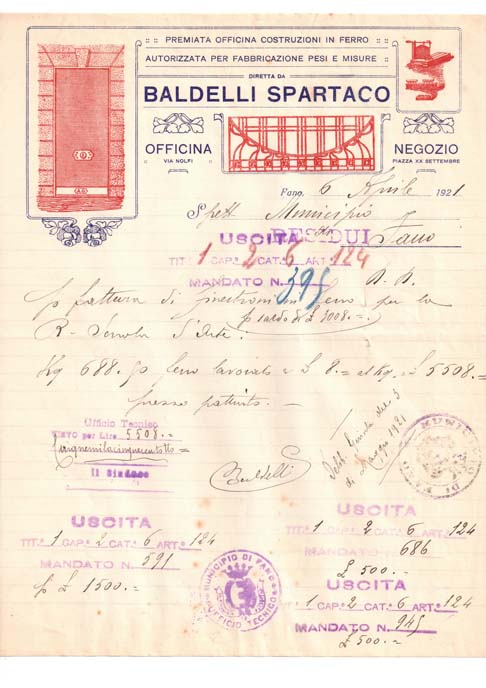 PREMIATA OFFICINA COSTRUZIONI IN FERRO
AUTORIZZATA PER FABBRICAZIONE PESI E MISURE
DIRETTA DA
BALDELLI SPARTACO
OFFICINA
VIA NOLFI
NEGOZIO
PIAZZA XX SETTEMBRE
Fano, 6 Aprile 1921
Spett. Municipio
di Fano
USCITA RESIDUI
TIT.º 1 CAP.º 2 CAT.ª 6 ART.º 124
MANDATO N. 395
p fattura di in ferro per la
p saldo di £ 3008.=
R. Scuola d'Arte.
Kg 688.50 ferro lavorato a £ 8.= al Kg. £ 5508.=
prezzo pattuito.=
Ufficio Tecnico
VISTO per Lire 5508.=
Cinquemilacinquecentotto=
Il Sindaco
Baldelli
Delib. Giunta del 3
di Maggio 1921
MUNICIPIO DI FANO
USCITA
TIT.º 1 CAP.º 2 CAT.ª 6 ART.º 124
MANDATO N. 591
p £ 1500.=
MUNICIPIO DI FANO
UFFICIO TECNICO
USCITA
TIT.º 1 CAP.º 2 CAT.ª 6 ART.º 124
MANDATO N. 686
£ 500.=
USCITA
TIT.º 1 CAP.º 2 CAT.ª 6 ART.º 124
MANDATO N. 945
£ 500.=